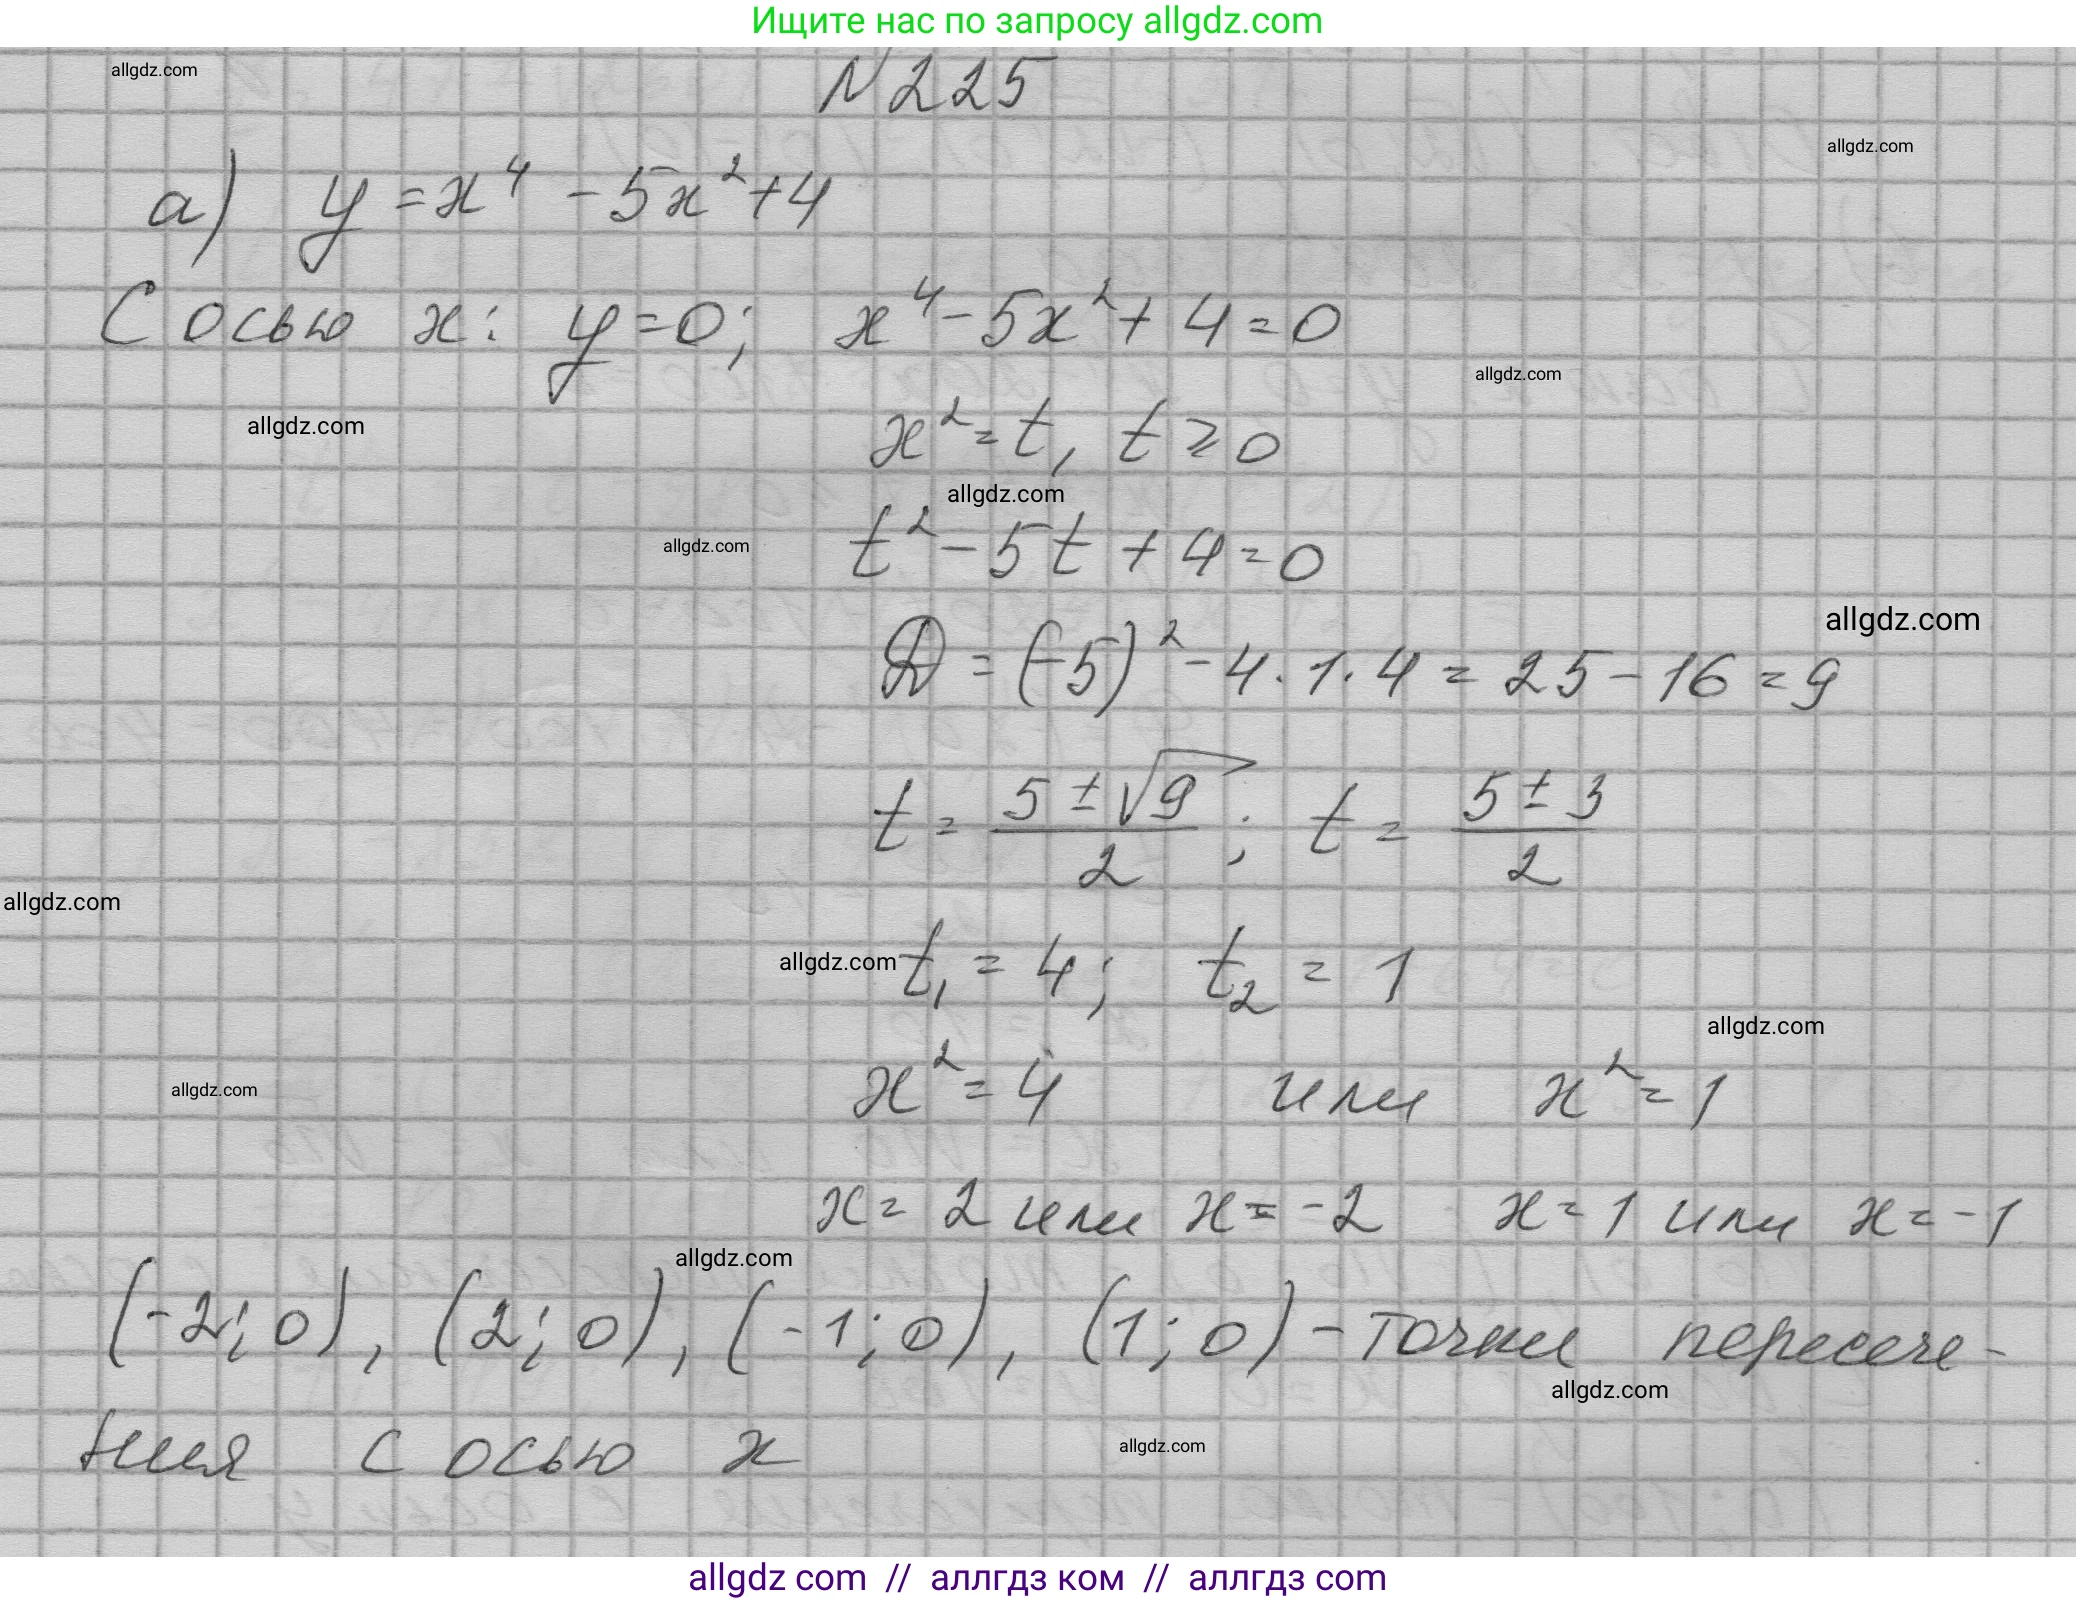 Ищите нас по запросу allgdz.com
allgdz.com
N225
allgdz.com
а) y = x⁴ - 5x² + 4
С осью x: y = 0; x⁴ - 5x² + 4 = 0
allgdz.com
allgdz.com
x² = t, t ⩾ 0
allgdz.com
allgdz.com
t² - 5t + 4 = 0
allgdz.com
D = (-5)² - 4 · 1 · 4 = 25 - 16 = 9
t = (5 ± √9)/2; t = (5 ± 3)/2
allgdz.com
allgdz.com
t₁ = 4; t₂ = 1
allgdz.com
allgdz.com
x² = 4 или x² = 1
x = 2 или x = -2 x = 1 или x = -1
allgdz.com
(-2; 0), (2; 0), (-1; 0), (1; 0) - точки пересече-
allgdz.com
ния с осью x
allgdz.com
allgdz com // аллгдз ком // аллгдз com